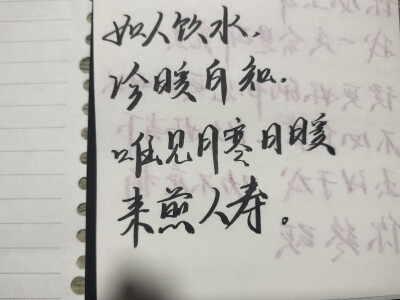 如人饮水，
冷暖自知．
唯见月寒日暖
来煎人寿。